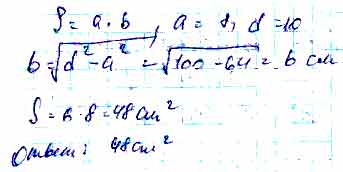 S = a · b, a = 8, d = 10
b = √(d² - a²) = √(100 - 64) = 6 см
S = 6 · 8 = 48 см²
Ответ: 48 см²